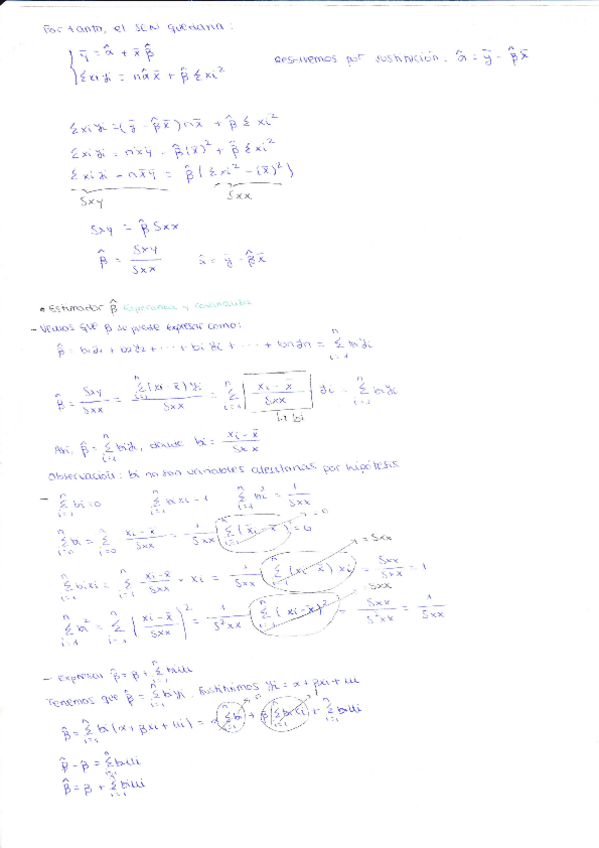 Por tanto, el SEN quedaría:
ȳ = α̂ + x̄ β̂
Σxiyi = nα̂x̄ + β̂ Σxi²
Resolvemos por sustitución: α̂ = ȳ - β̂x̄
Σxiyi = (ȳ - β̂x̄)nx̄ + β̂ Σxi²
Σxiyi = nx̄ȳ - β̂(x̄)² + β̂Σxi²
Σxiyi - nx̄ȳ = β̂(Σxi² - (x̄)²)
Sxy Sxx
Sxy = β̂ Sxx
β̂ = Sxy/Sxx α̂ = ȳ - β̂x̄
• Estimador β̂ Esperanza y varianza
- Vemos que β se puede expresar como:
β̂ = b1y1 + b2y2 + ... + biyi + ... + bnyn = Σ(i=1..n) biyi
β̂ = Sxy/Sxx = Σ(i=1..n)(xi - x̄)yi / Sxx = Σ(i=1..n) [(xi - x̄)/Sxx] yi = Σ(i=1..n) biyi
bi
Así, β̂ = Σ(i=1..n) biyi, donde bi = (xi - x̄)/Sxx
Observación: bi no son variables aleatorias por hipótesis
- Σ(i=1..n) bi = 0 Σ(i=1..n) bixi = 1 Σ(i=1..n) bi² = 1/Sxx
Σ(i=0..n) bi = Σ(i=0..n) (xi - x̄)/Sxx = 1/Sxx Σ(i=1..n)(xi - x̄) = 0 → =0
Σ(i=1..n) bixi = Σ(i=1..n) (xi - x̄)/Sxx · xi = 1/Sxx Σ(i=1..n)(xi - x̄)xi = Sxx/Sxx = 1 → = Sxx
Σ(i=1..n) bi² = Σ(i=1..n) ((xi - x̄)/Sxx)² = 1/S²xx Σ(i=1..n)(xi - x̄)² = Sxx/S²xx = 1/Sxx → = Sxx
- Expresar β̂ = β + Σ(i=1..n) biui
Tenemos que β̂ = Σ(i=1..n) biyi. Sustituimos yi = α + βxi + ui
β̂ = Σ(i=1..n) bi(α + βxi + ui) = α Σ(i=1..n) bi + β Σ(i=1..n) bixi + Σ(i=1..n) biui
β̂ - β = Σ(i=1..n) biui
β̂ = β + Σ(i=1..n) biui